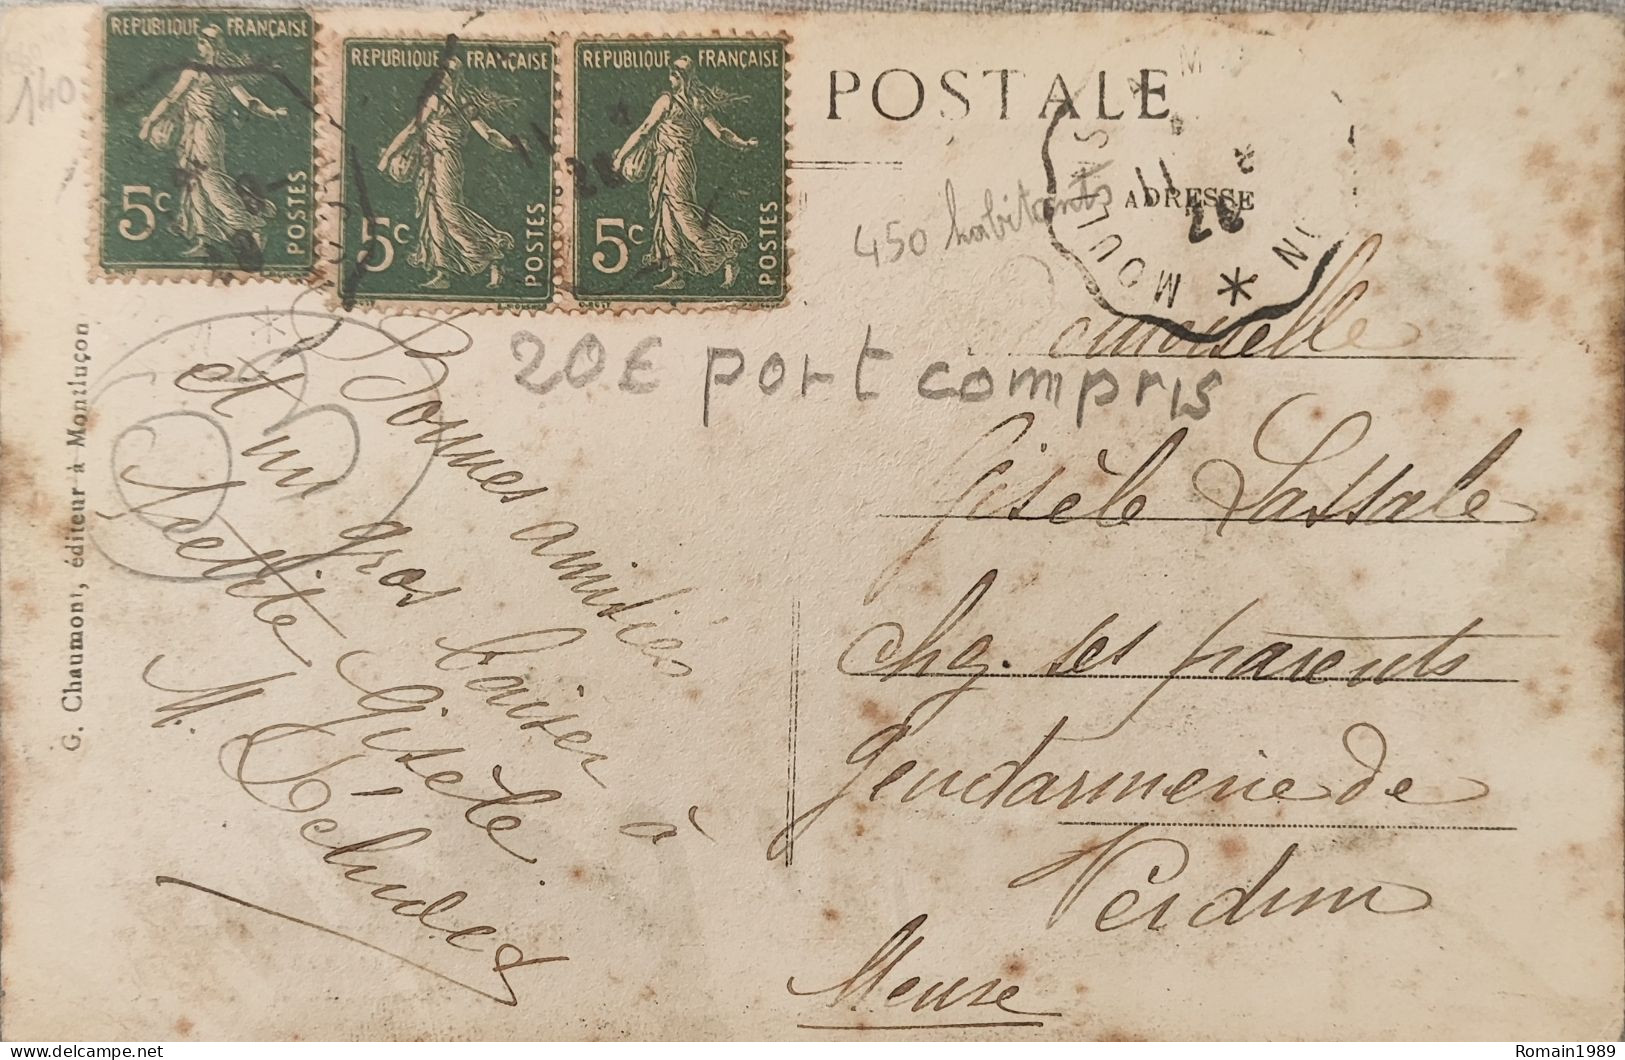 RÉPUBLIQUE FRANÇAISE
5c
POSTES
RÉPUBLIQUE FRANÇAISE
5c
POSTES
RÉPUBLIQUE FRANÇAISE
5c
POSTES
140
POSTALE
ADRESSE
450 habitants
MOULINS A
11
26
20€ port compris
Bonnes amitiés
et un gros baiser à
petite Gisèle.
M.
G. Chaumont, éditeur à Montluçon
Gisèle Lassale
chg. ses parents
Gendarmerie de
Verdun
Meuse
Romain1989